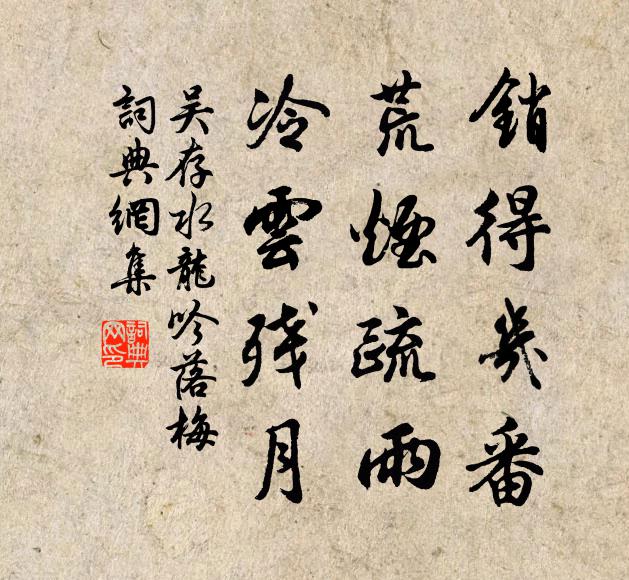 銷得幾番
荒煙疏雨
冷雲残月
吴存水龍吟落梅
詞典網集
詞典
网印